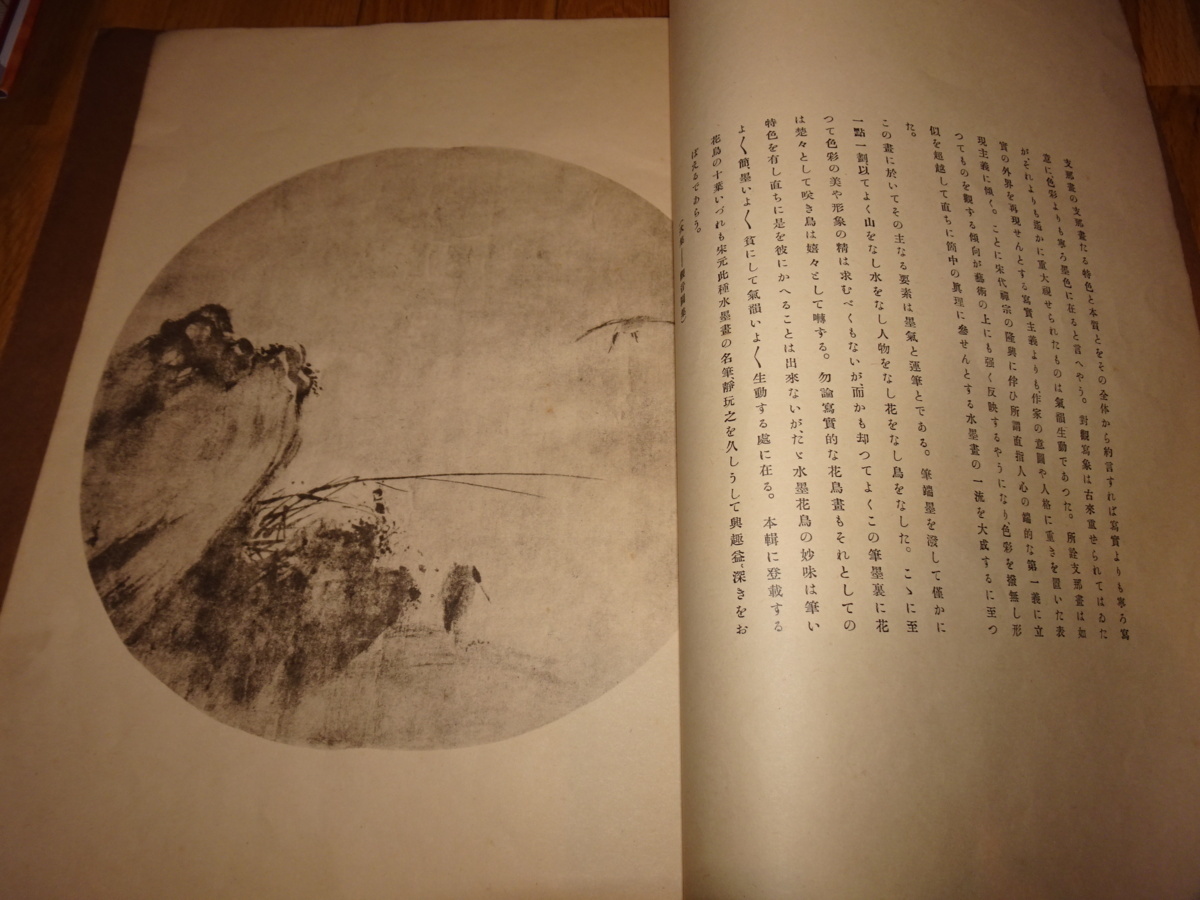 支那畫の支那畫たる特色と本質とをその全体から約言すれば寫實よりも寧ろ寫
意に色彩よりも寧ろ墨色に在ると言へやう。對觀寫象は古來重せられてはゐた
が、それよりも遙かに重大視せられたものは氣韻生動であつた。所詮支那畫は如
實の外界を再現せんとする寫實主義よりも、作家の意圖や人格に重きを置いた表
現主義に傾く。ことに宋代禪宗の隆興に伴ひ所謂直指人心の端的な第一義に立
つてものを觀する傾向が藝術の上にも强く反映するやうになり、色彩を擔無し形
似を超越して直ちに箇中の眞理に參せんとする水墨畫の一流を大成するに至つ
た。
この畫に於いてその主なる要素は墨氣と運筆とである。筆端墨を潑して僅かに
一點一劃以てよく山をなし水をなし人物をなし花をなし鳥をなした。こゝに至
つて色彩の美や形象の精は求むべくもないが、而かも却つてよくこの筆墨裏に花
は楚々として咲き鳥は嬉々として囀する。勿論寫實的な花鳥畫もそれとしての
特色を有し直ちに是を彼にかへることは出來ないが、たゞ水墨花鳥の妙味は筆い
よ〱簡、墨いよ〱貧にして氣韻いよ〱生動する處に在る。本輯に登載する
花鳥の十葉いづれも宋元此種水墨畫の名筆、靜玩之を久しうして興趣益〻深きをお
ぼえるであらう。